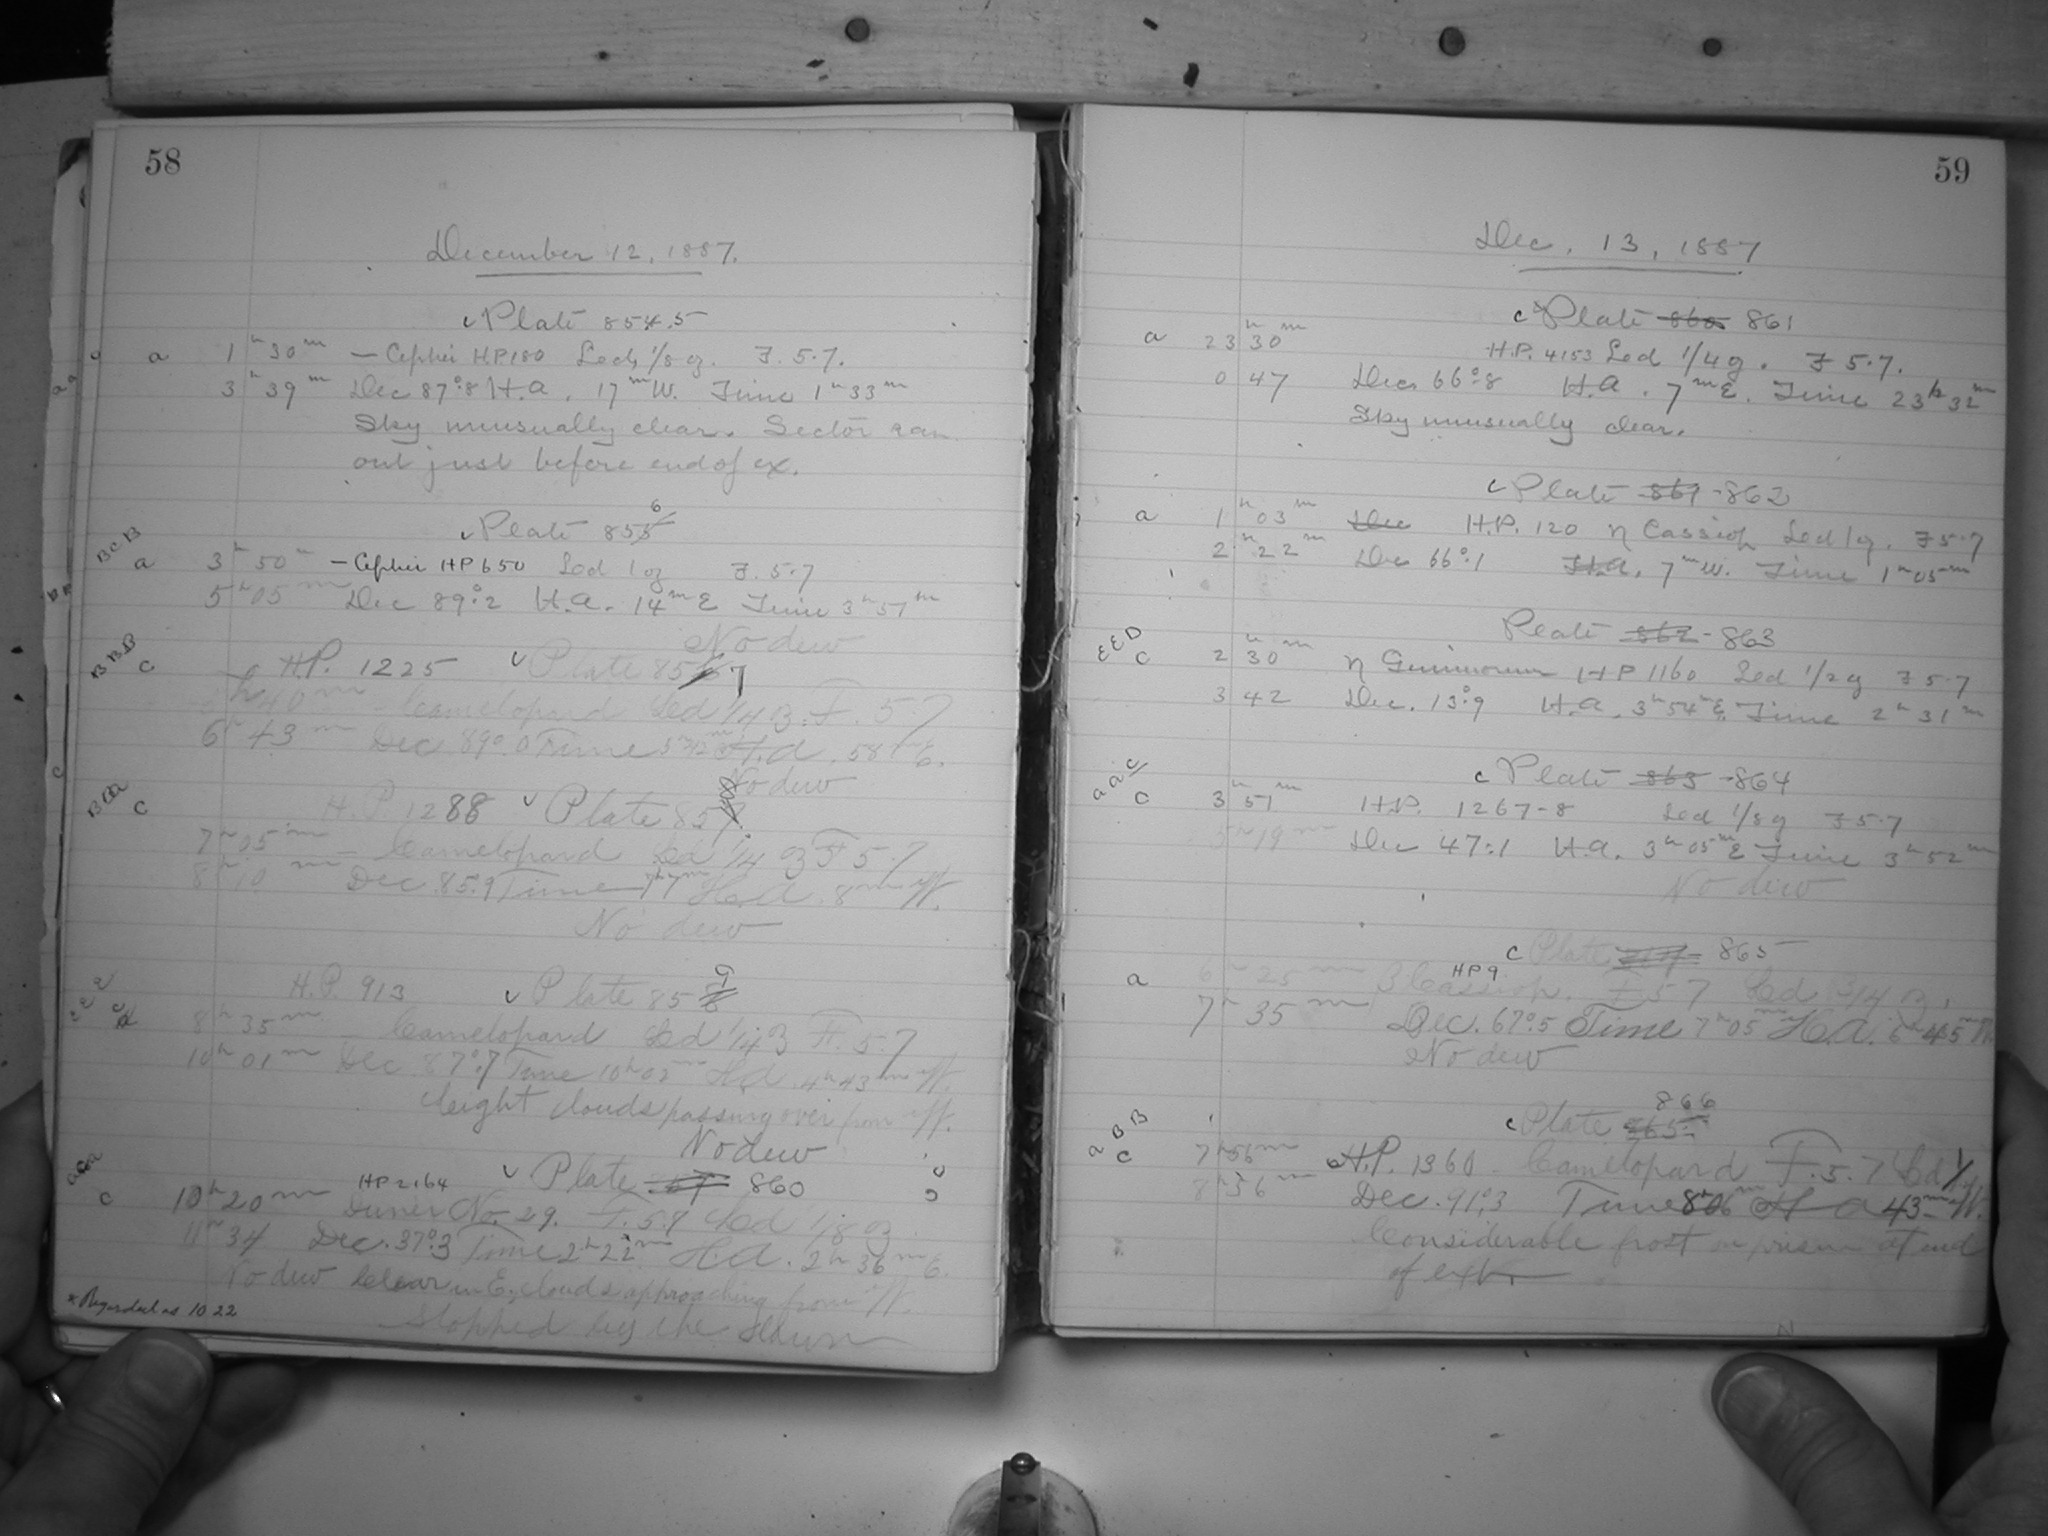 58
December 12, 1887.
Plate 854.5
a 1h 30m — Cephei HP180 Led, 1/8 oz. F. 5.7.
3h 39m Dec 87°.8 H.A. 17m W. Time 1h 33m
Sky unusually clear. Sector ran
out just before end of ex.
Plate 855 6
BCB a 3h 50m — Cephei HP650 Led 1 oz F. 5.7
5h 05m Dec 89°.2 H.A. 14m E Time 3h 51m
No dew
BBB c H.P. 1225 Plate 85 7
40m — Camelopard Led 1/4 oz. F. 5.7
6h 43m Dec 89°.0 Time 5h 42m H.A. 58m E.
No dew
c H.P. 1288 Plate 857
7h 05m — Camelopard Led 1/4 oz F 5.7
8h 10m Dec. 85.9 Time H.A. 8m W.
No dew
H.P. 913 Plate 858 9
8h 35m Camelopard Led 1/4 oz F. 5.7
10h 01m Dec. 87°.7 Time 10h 02m H.A. 4h 43m W.
Light clouds passing over from W.
No dew
c HP 2164 Plate 860
10h 20m Duner No. 29. F. 5.7 Led 1/8 oz
11h 34 Dec. 37°.3 Time 2h 22m H.A. 2h 36m E.
No dew Clear in E, clouds approaching from W.
* Regarded as 10 22
Stopped by the
59
Dec. 13, 1887
c Plate 860 861
a 23h 30m H.P. 4153 Led 1/4 oz. F 5.7.
0 47 Dec 66°.8 H.A. 7m E. Time 23h 32m
Sky unusually clear.
c Plate 861 - 862
a 1h 03m Dec H.P. 120 η Cassiop Led 1 oz. F 5.7
2h 22m Dec 66°.1 H.A. 7m W. Time 1h 05m
Plate 862 - 863
EED c 2h 30m η Geminorum HP 1160 Led 1/2 oz F 5.7
3 42 Dec. 13°.9 H.A. 3h 54m E. Time 2h 31m
c Plate 863 - 864
aac c 3h 51m H.P. 1267-8 Led 1/8 oz F 5.7
5h 19m Dec 47°.1 H.A. 3h 05m E Time 3h 52m
No dew
c Plate 865
a 6h 25m HP 9 β Cassiop. F 5.7 Led 3/4 oz.
7h 35m Dec. 67°.5 Time 7h 05m H.A. 6h 45m W.
No dew
866
c Plate 865
aBB c 7h 56m H.P. 1360 - Camelopard F. 5.7 Led
8h 56m Dec. 91°.3 Time 8h 06m H A 43m W.
Considerable frost on prism at end
of exp.